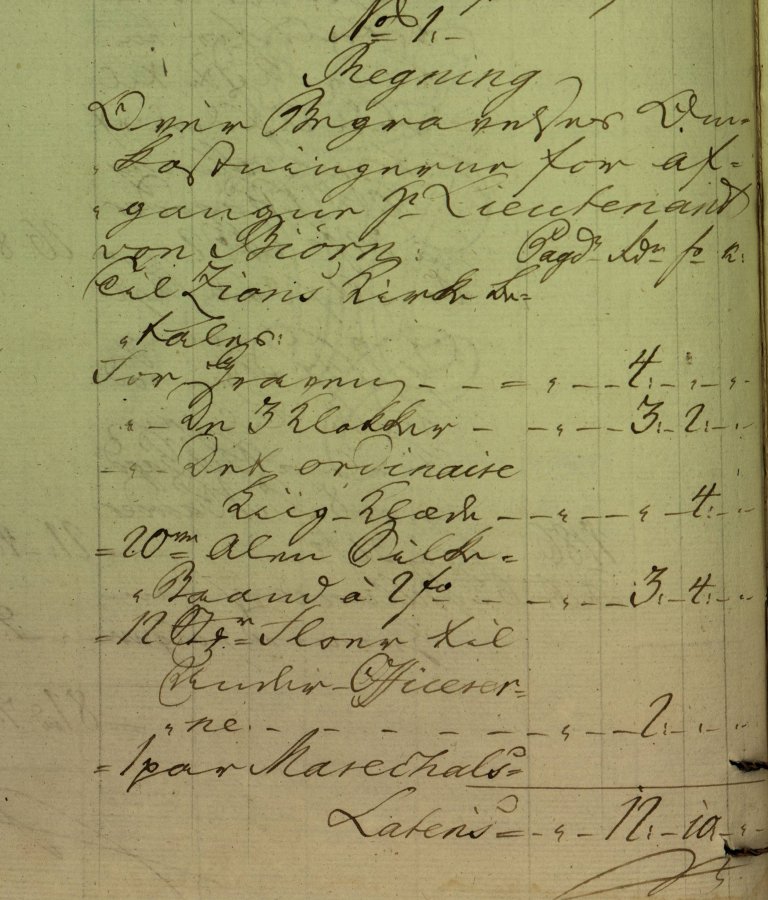 No 1.
Regning
Over Begravelses Om-
kostningerne for af-
gangne Pr Lieutenant
von Biörn. Pagd. Rdr fo k:
Til Zions Kirke be-
tales:
For Graven - - = " - - 4. - " - "
" - De 3 Klokker - - " - - 3. - 2. - "
- " - Det ordinaire
Liig-Klæde - - " - - " - 4. - "
= 20 Alen Silke-
" Baand à 2 fo - - " - - 3. - 4. - "
= 12 Floer til
Under-Officerer-
" ne. - - - - - - " - - 2. - " - "
= 1 par Marechals-
Lateris = - " - 12. - 10 - "